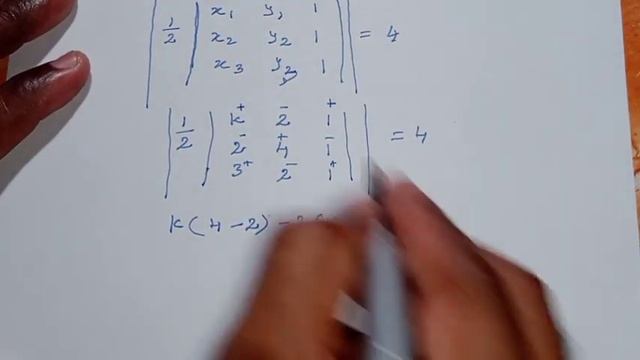 | 1/2 | x₁ y₁ 1 |
x₂ y₂ 1 | = 4
x₃ y₃ 1 |
| 1/2 | k⁺ 2⁻ 1⁺ |
2⁻ 4⁺ 1⁻ | = 4
3⁺ 2⁻ 1⁺ |
k(4-2) -2